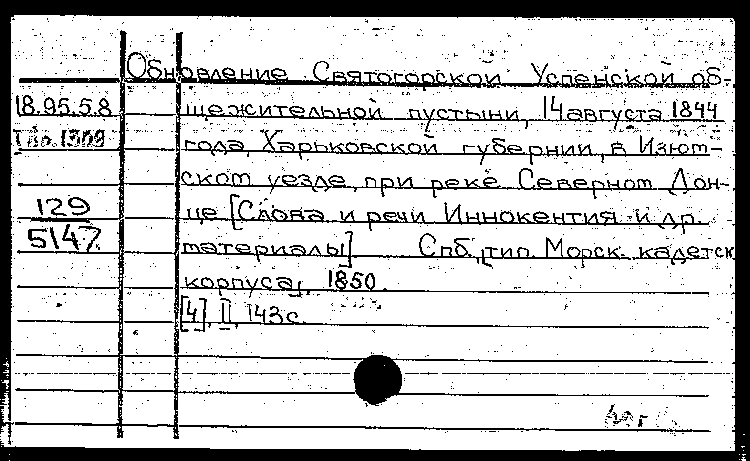 Обновление Святогорской Успенской об-
18.95.5.8 щежительной пустыни, 14 августа 1844
года, Харьковской губернии, в Изюм-
ском уезде, при реке Северном Дон-
129 це [Слова и речи Иннокентия и др.
5147 материалы] Спб., тип. Морск. кадетск.
корпуса, 1850.
[4], II, 143 с.